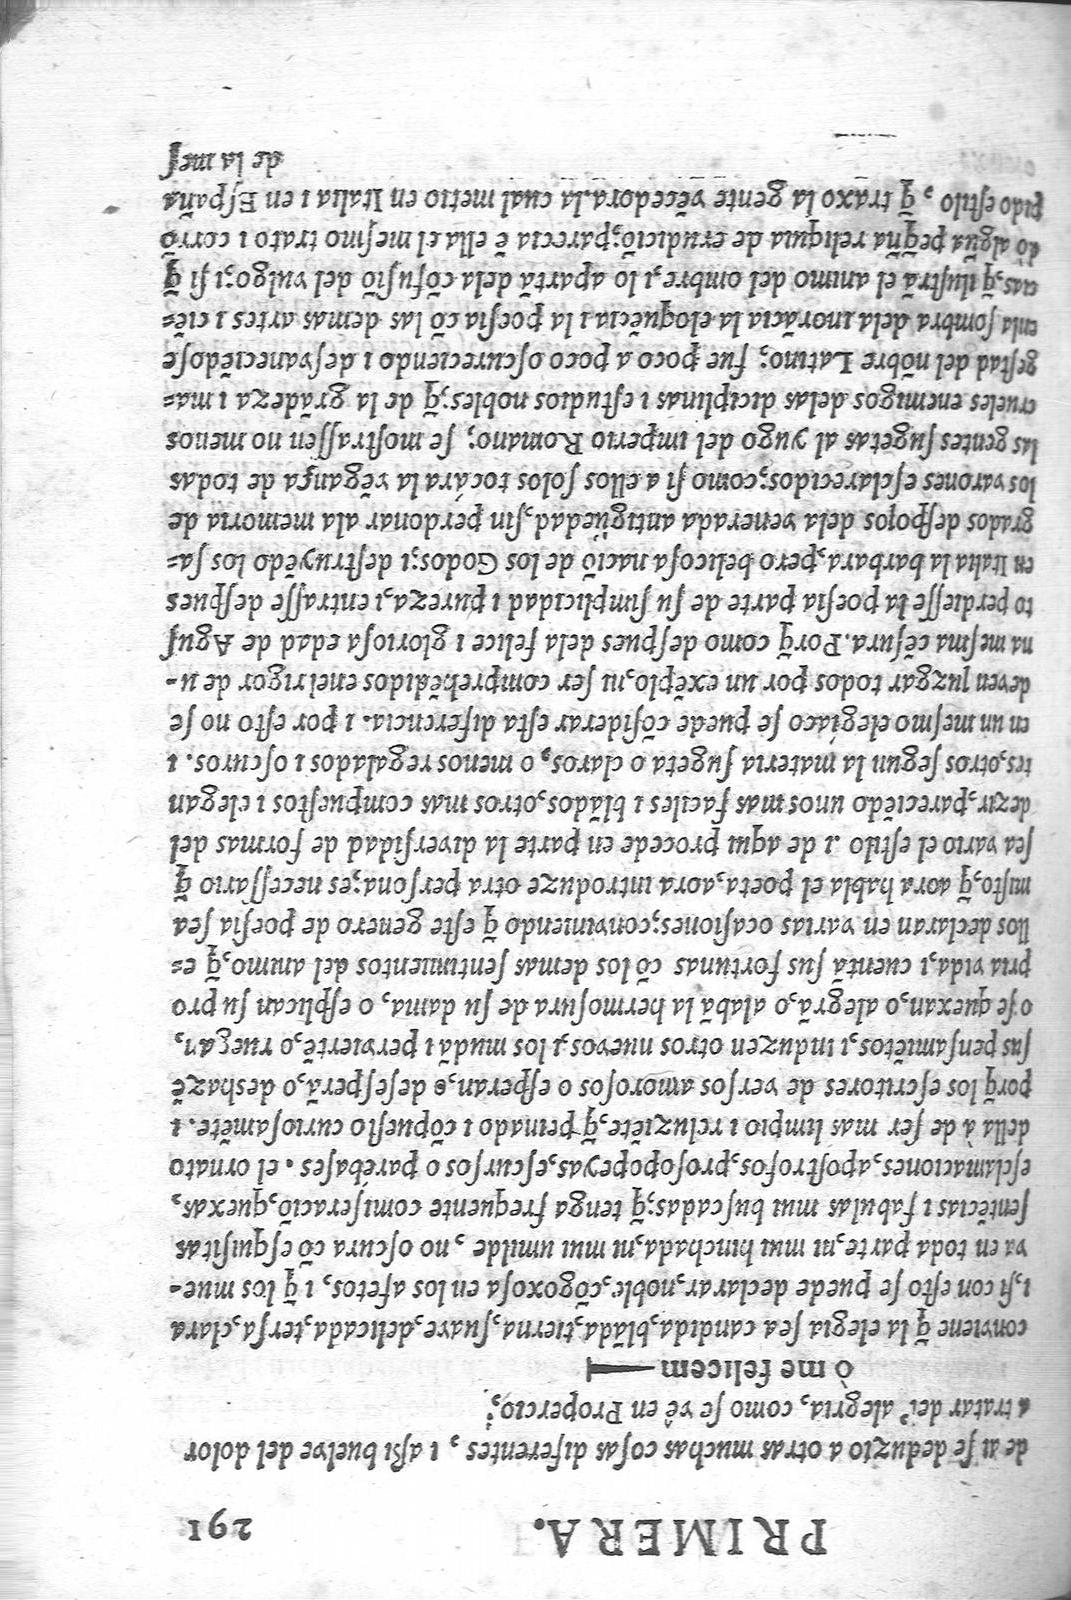 PRIMERA. 291
de ai se deduzio a otras muchas cosas diferentes, i aßi buelve del dolor
a tratar del alegria, como se vê en Propercio;
ò me felicem
conviene q̃ la elegia sea candida, blãda, tierna, suave, delicada, tersa, clara
i, si con esto se puede declarar, noble, cõgoxosa en los afetos, i q̃ los mue-
va en toda parte, ni mui hinchada, ni mui umilde, no oscura cõ esquisitas
sentẽcias i fabulas mui buscadas; q̃ tenga frequente comiseraciõ, quexas,
esclamaciones, apostrofos, prosopopeyas, escursos o parẽbases. el ornato
della à de ser mas limpio i reluziẽte, q̃ peinado i cõpuesto curiosamẽte. i
porq̃ los escritores de versos amorosos o esperan, o desesperã, o deshazẽ
sus pensamiẽtos, i induzen otros nuevos, i los mudã i perviertẽ, o ruegan,
o se quexan, o alegrã, o alabã la hermosura de su dama, o esplican su pro
pria vida, i cuentã sus fortunas cõ los demas sentimientos del animo, q̃ e-
llos declaran en varias ocasiones; conviniendo q̃ este genero de poesia sea
misto, q̃ aora habla el poeta, aora introduze otra persona; es necessario q̃
sea vario el estilo. i de aqui procede en parte la diversidad de formas del
dezir, pareciẽdo unos mas faciles i blãdos, otros mas compuestos i elegan
tes, otros segun la materia sugeta o claros, o menos regalados i oscuros. i
en un mesmo elegiaco se puede cõsiderar esta diferencia. i por esto no se
deven juzgar todos por un exẽplo, ni ser comprehẽdidos en el rigor de u-
na mesma cẽsura. Porq̃ como despues dela felice i gloriosa edad de Agus
to perdiesse la poesia parte de su simplicidad i pureza, i entrasse despues
en Italia la barbara, pero belicosa naciõ de los Godos; i destruyẽdo los sa-
grados despojos dela venerada antigüedad, sin perdonar ala memoria de
los varones esclarecidos; como si a ellos solos tocára la vẽgança de todas
las gentes sugetas al yugo del imperio Romano; se mostrassen no menos
crueles enemigos delas diciplinas i estudios nobles; q̃ de la grãdeza i ma-
gestad del nõbre Latino; fue poco a poco oscureciendo i desvaneciẽdose
enla sombra dela inorãcia la eloquẽcia i la poesia cõ las demas artes i ciẽ-
cias, q̃ ilustrã el animo del ombre, i lo apartã dela cõfusiõ del vulgo: i si q̃
dò algũa peq̃ña reliquia de erudiciõ; parecia ẽ ella el mesmo trato i corrõ
pido estilo, q̃ traxo la gente vẽcedora. la cual metio en Italia i en España
de la mes